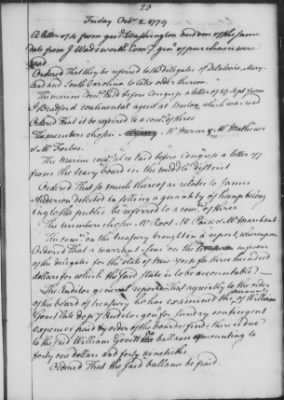 23
Friday Octr. 1. 1779
A letter of from genl Washington and one of the same
date from J Wadsworth Comy genl of purchases were
read
Ordered That they be referred to the delegates of Delaware, Mary-
land and South Carolina to take order thereon.
The marine comee laid before Congress a letter of Sept from
Bradford continental agent at Boston, which was read
Ordered That it be referred to a comee of three
The members chosen Mr. Mathews
Mr Forbes.
The Marine comee also laid before Congress a letter of
from the Navy board in the middle district
Ordered That so much thereof as relates to James
Anderson detained in selling a quantity of hemp belong
ing to the public be referred to a comee of three
The members chosen Mr Root Mr Marchant
The comee on the treasury brought in a report, whereupon
Ordered That a warrant issue on the in favour
of the delegates for the state of New York for three hundred
dollars for which the said state is to be accountable.
The Auditor general reports That agreeably to the order
of the board of treasury he has examined the accounts of William
Govett late dep Auditor genl for sundry contingent
expences paid by order of the board & finds there is due
to the said William Govett a ballance amounting to
forty one dollars and forty ninetieths
Ordered That the said ballance be paid.